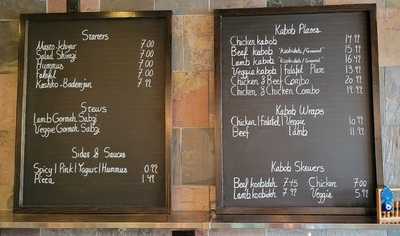 Starters
Masto khiyar 7.00
Salad Shirazi 7.00
Hummus 7.00
Falafel 7.00
Kashko-Bademjan 7.99
Stews
Lamb Gormeh Sabzi
Veggie Gormeh Sabzi
Sides & Sauces
Spicy | Pink | Yogurt | Hummus 0.99
Pita 1.49
Kabob Plates
Chicken kabob 14.99
Beef kabob 15.99
Lamb kabob 16.99
Veggie kabob | Falafel Plate 13.99
Chicken & Beef Combo
Chicken & Chicken Combo 19.99
Kabob Wraps
Chicken | Falafel | Veggie 10.99
Beef Lamb 11.99
Kabob Skewers
Beef koobideh 7.45 Chicken 7.00
Lamb koobideh 7.99 Veggie 5.99